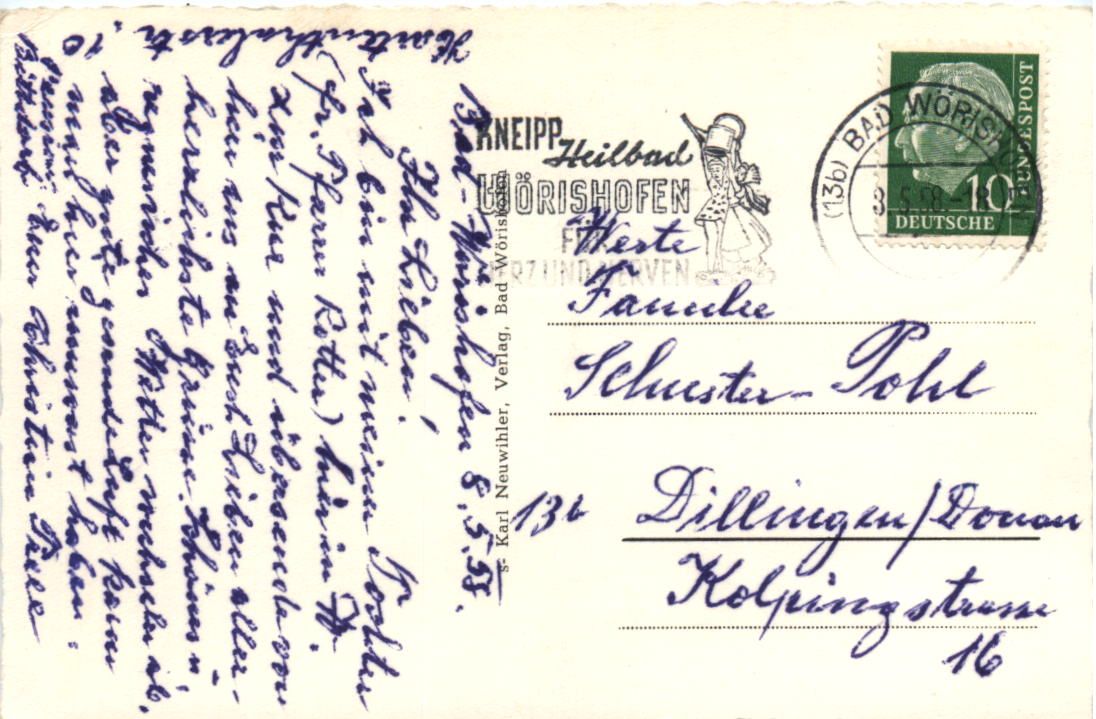 Bad-Wörishofen 8.5.58.
Ihr Lieben!
Ich bin mit meiner Tochter
(fr. Pfarrer Rotter) hier in W.
zur Kur und übersende von
hier aus an Euch Lieben aller-
herzlichste Grüsse. Schönes u.
regnerisches Wetter wechseln ab,
aber gute gesunde Luft kann
man hier umsonst haben.
Eure Christine
KNEIPP
Heilbad
WÖRISHOFEN
FÜR
HERZ UND NERVEN
(13b) BAD WÖRISHOFEN
8.5.58.-18
DEUTSCHE
BUNDESPOST
10
s- Karl Neuwihler, Verlag, Bad Wörishofen
Werte
Familie
Schuster-Pohl
13b Dillingen/Donau
Kolpingstrasse
16